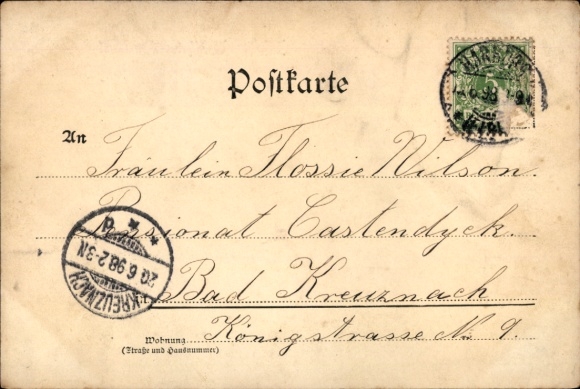 Postkarte
5
6 98
An
Fräulein Flossie Wilson.
Pensionat Castendyck.
Bad Kreuznach
Königstrasse No 9.
Wohnung
(Straße und Hausnummer)
KREUZNACH
20.6.98.2-3N